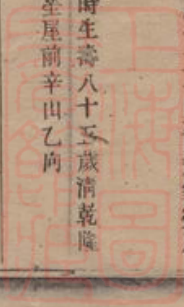 時生壽八十五歲清乾隆
塋屋前辛山乙向